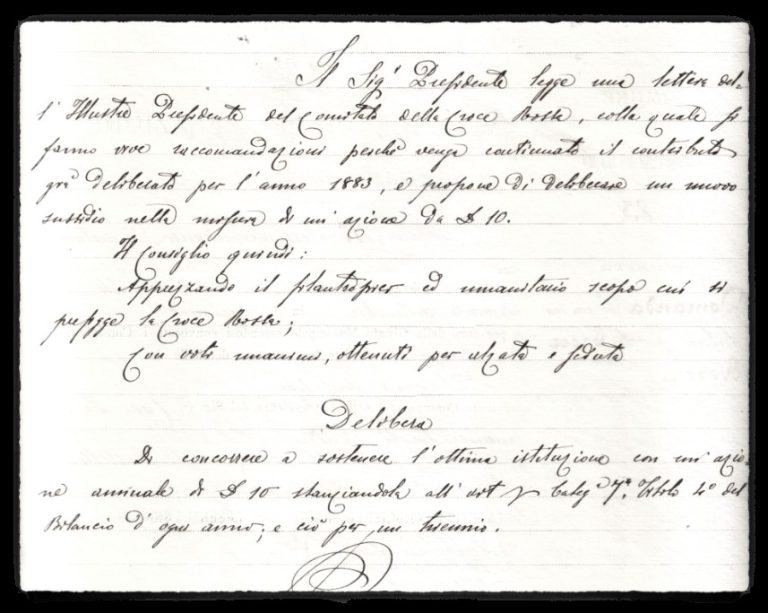 Il Sig.r Presidente legge una lettera del=
l'Illustre Presidente del Comitato della Croce Rossa, colla quale si
fanno vive raccomandazioni perchè venga continuato il contributo
già deliberato per l'anno 1883, e propone di deliberare un nuovo
sussidio nella misura di un'azione da £ 10.
Il Consiglio quindi:
Apprezzando il filantropico ed umanitario scopo cui si
prefigge la Croce Rossa;
Con voti unanimi, ottenuti per alzata e seduta
Delibera
Di concorrere a sostenere l'ottima istituzione con un'azio=
ne annuale di £ 10 stanziandola all'art Categ.a 7.a Titolo 4.o del
Bilancio d'ogni anno; e ciò per un triennio.